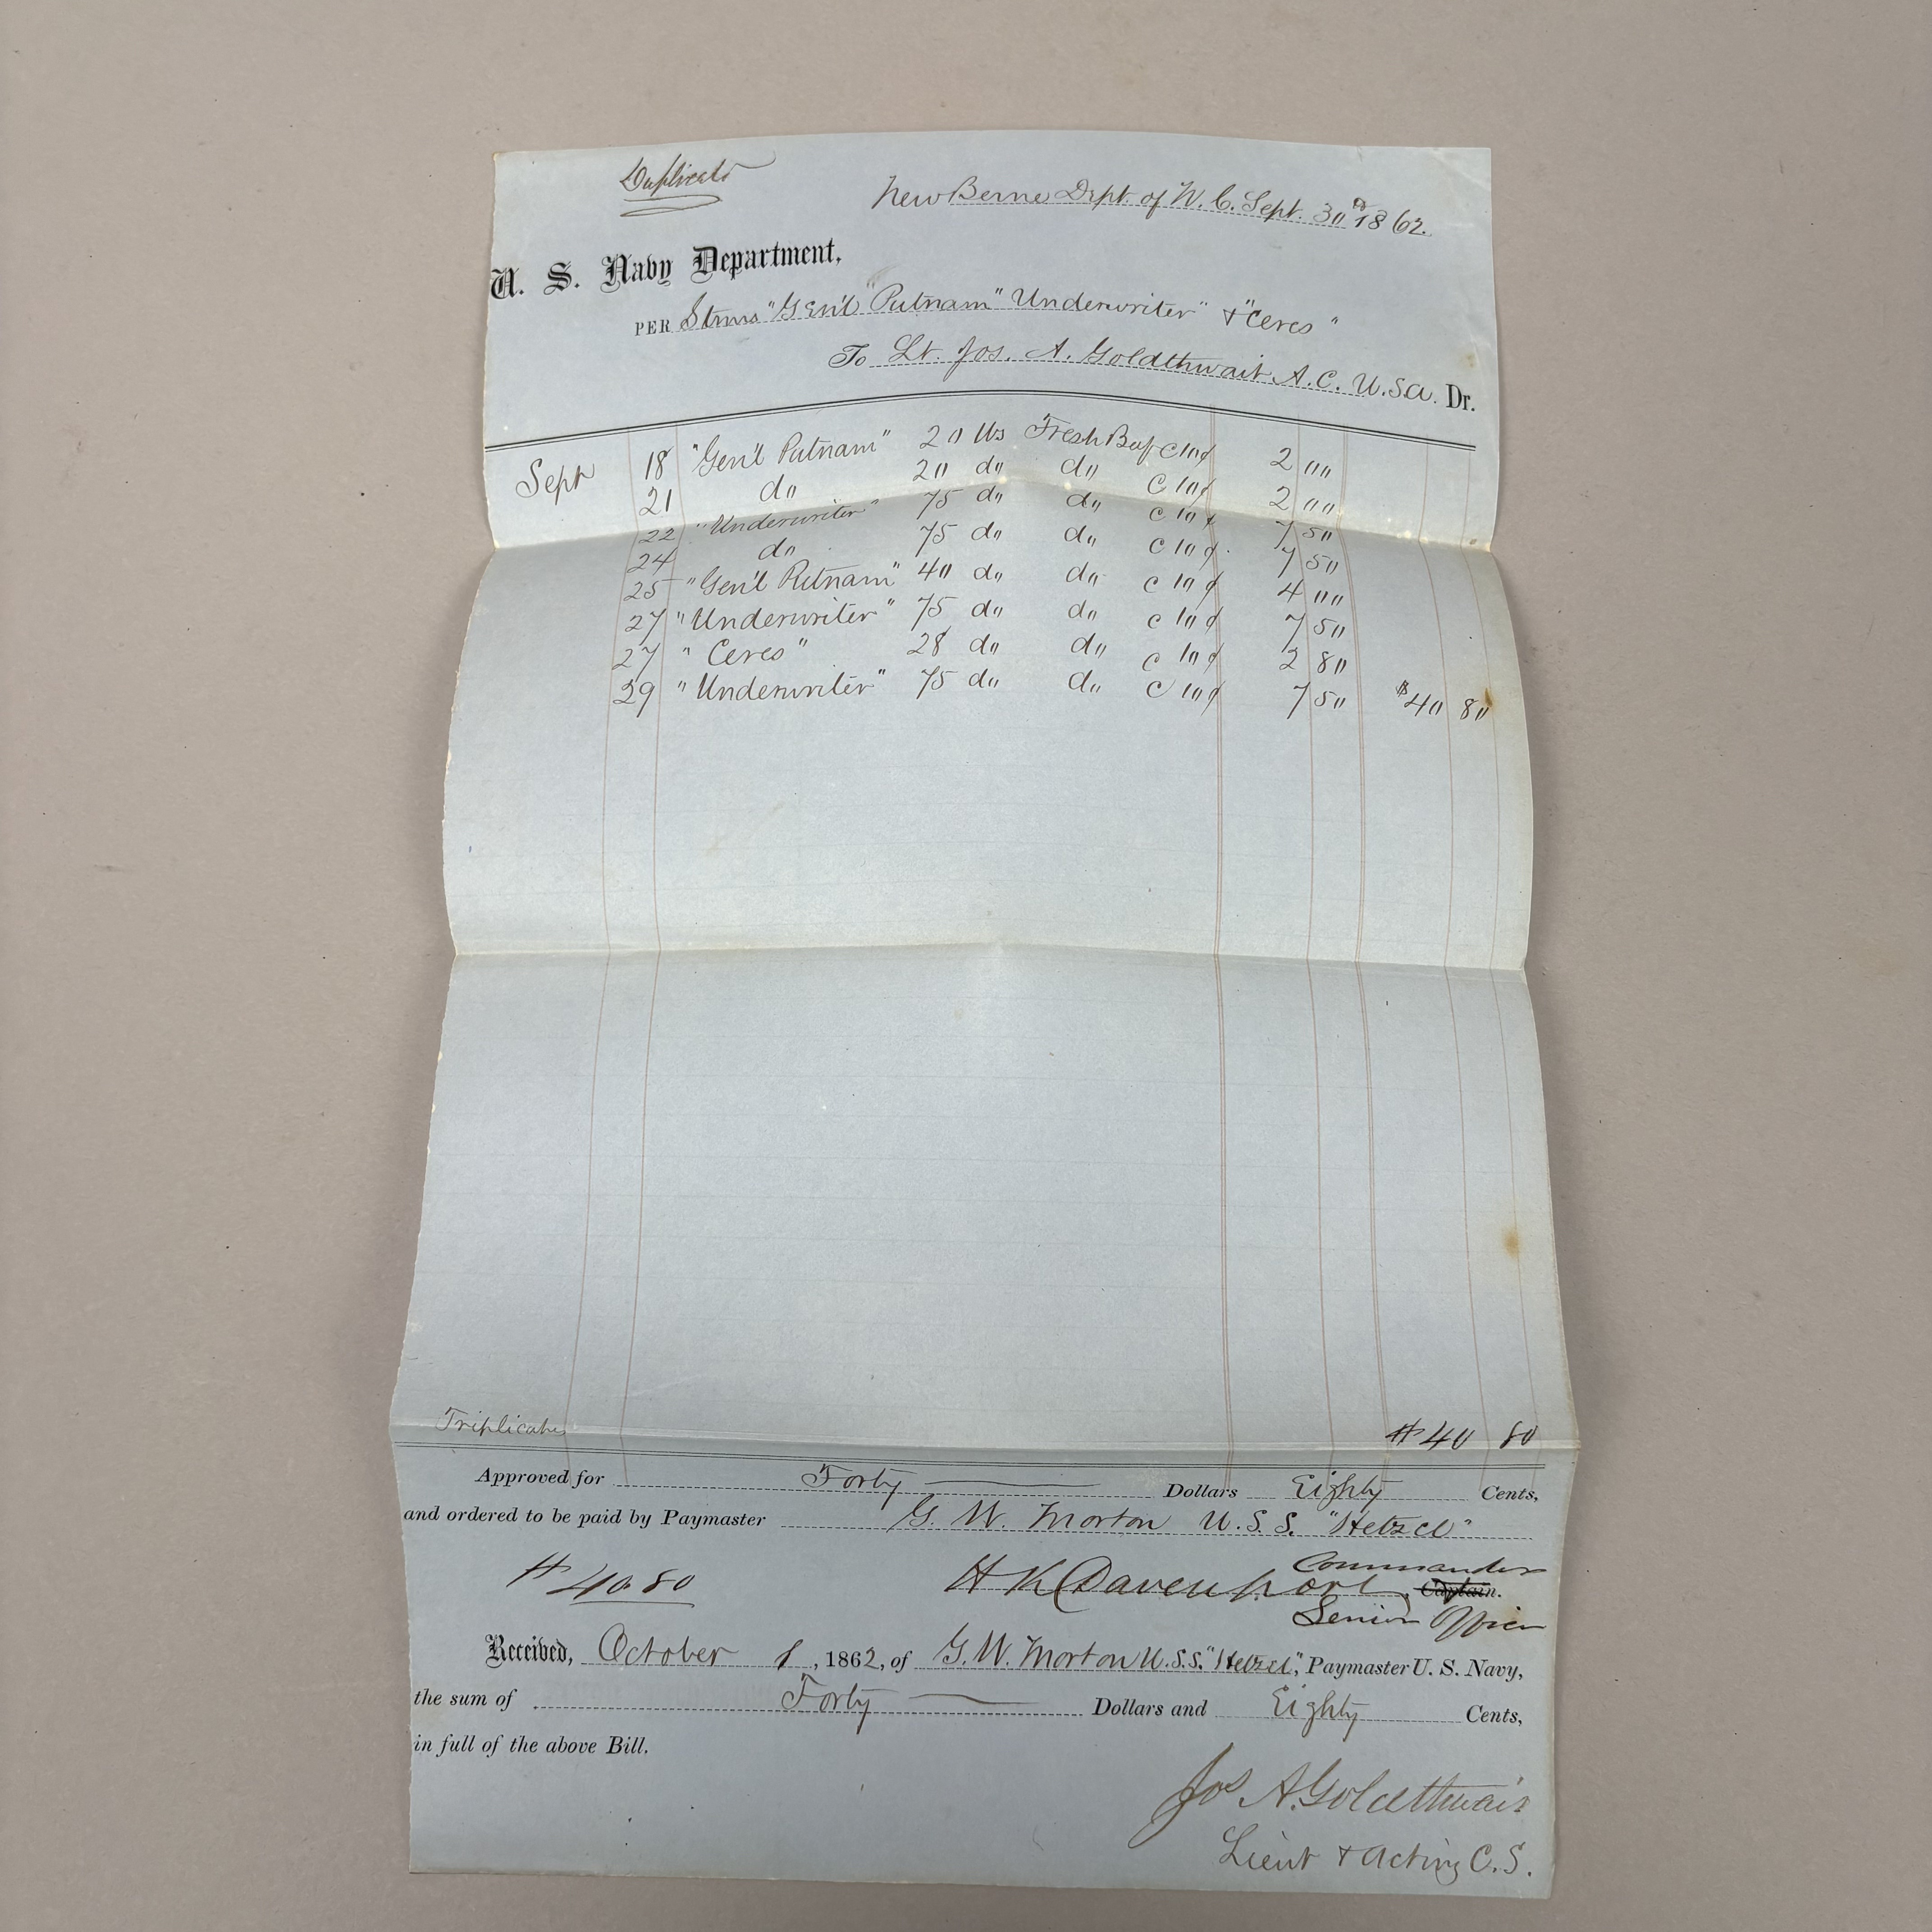 Duplicate
New Berne Dept. of N. C. Sept. 30th 1862.
U. S. Navy Department,
PER Stmrs "Gen'l Putnam" "Underwriter" & "Ceres"
To Lt. Jos. A. Goldthwait A. C. U.S.A. Dr.
Sept 18 "Gen'l Putnam" 20 lbs Fresh Beef @ 10¢ 2 00
21 do 20 do do @ 10¢ 2 00
22 "Underwriter" 75 do do @ 10¢ 7 50
24 do 75 do do @ 10¢. 7 50
25 "Gen'l Putnam" 40 do do @ 10¢ 4 00
27 "Underwriter" 75 do do @ 10¢ 7 50
27 "Ceres" 28 do do @ 10¢ 2 80
29 "Underwriter" 75 do do @ 10¢ 7 50 $40 80
Triplicate $40 80
Approved for Forty Dollars Eighty Cents,
and ordered to be paid by Paymaster G. W. Morton U.S.S. "Hetzel"
$40.80 H K Davenport, Commander
Captain.
Senior Officer
Received, October 1, 1862, of G. W. Morton U.S.S. "Hetzel", Paymaster U. S. Navy,
the sum of Forty Dollars and Eighty Cents,
in full of the above Bill.
Jos A. Goldthwait
Lieut & Acting C. S.